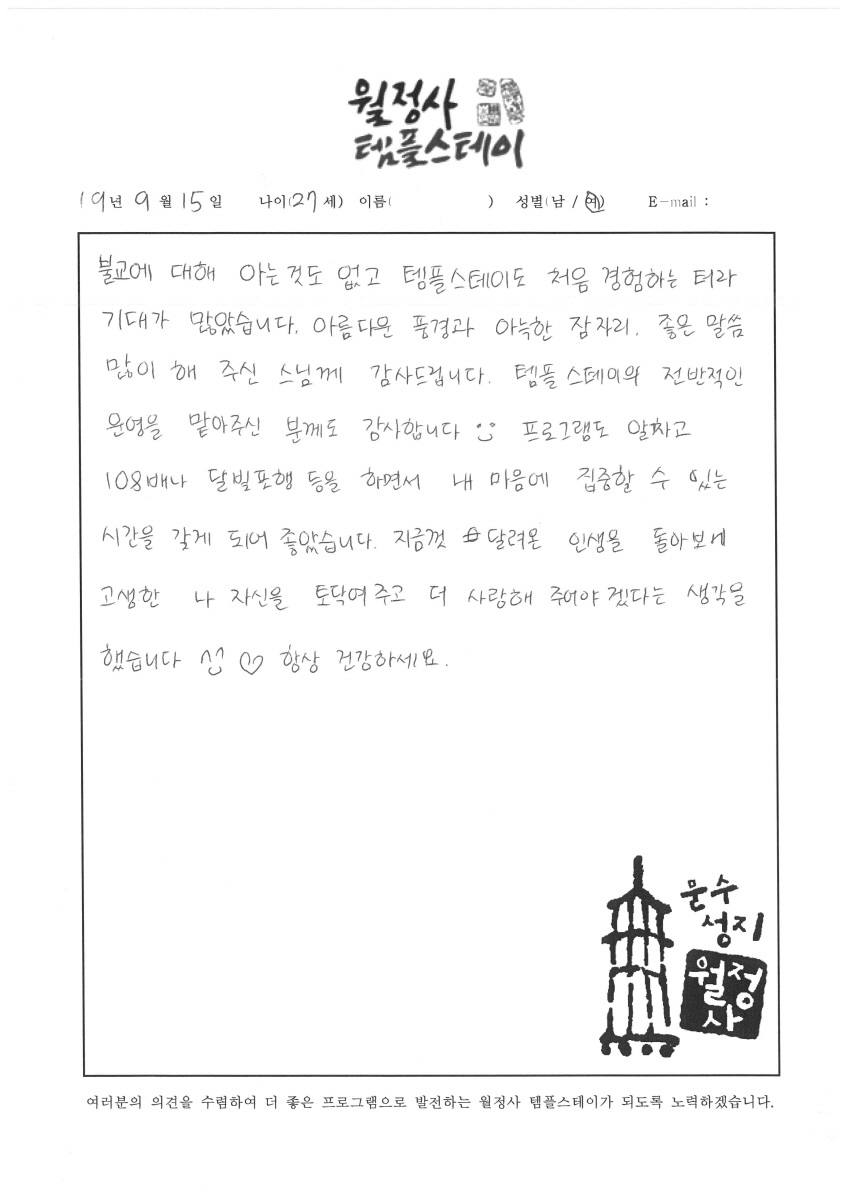 월정사
템플스테이
19년 9월 15일 나이(27세) 이름( ) 성별(남 / 여) E-mail :
불교에 대해 아는것도 없고 템플스테이도 처음 경험하는 터라
기대가 많았습니다. 아름다운 풍경과 아늑한 잠자리. 좋은 말씀
많이 해 주신 스님께 감사드립니다. 템플스테이와 전반적인
운영을 맡아주신 분께도 감사합니다 프로그램도 알차고
108배나 달빛포행 등을 하면서 내 마음에 집중할 수 있는
시간을 갖게 되어 좋았습니다. 지금껏 달려온 인생을 돌아보며
고생한 나 자신을 토닥여주고 더 사랑해 주어야겠다는 생각을
했습니다 ^^ ♡ 항상 건강하세요.
문수
성지
월정
사
여러분의 의견을 수렴하여 더 좋은 프로그램으로 발전하는 월정사 템플스테이가 되도록 노력하겠습니다.